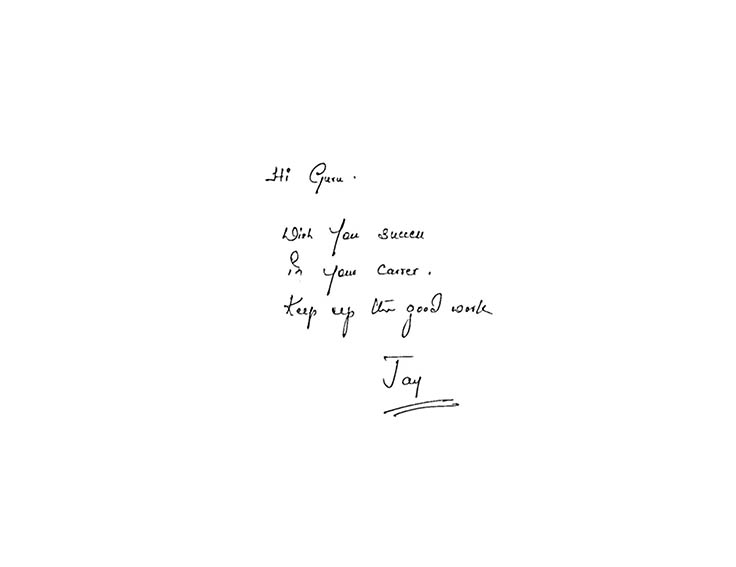 Hi Guru.
Wish you success
in your career.
Keep up the good work
Jay